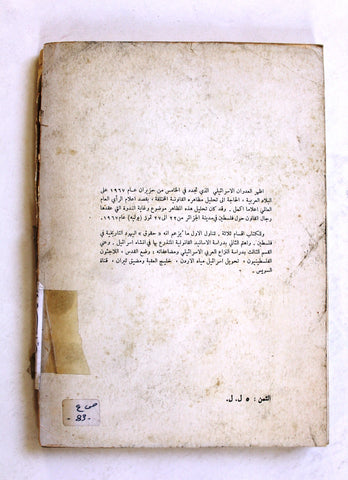 اظهر العدوان الاسرائيلي الذي تجدد في الخامس من حزيران عام ١٩٦٧ على
البلاد العربية ، الحاجة الى تحليل مظاهره القانونية المختلفة ، بقصد اعلام الرأي العام
العالمي اعلاما اكمل . وقد كان تحليل هذه المظاهر موضوع وغاية الندوة التي عقدها
رجال القانون حول فلسطين في مدينة الجزائر من ٢٢ الى ٢٧ تموز (يوليه) عام ١٩٦٧.
وللكتاب اقسام ثلاثة . تناول الاول ما يزعم انه « حقوق » اليهود التاريخية في
فلسطين . واهتم الثاني بدراسة الاسانيد القانونية المتذرع بها في انشاء اسرائيل . وعني
القسم الثالث بدراسة النزاع العربي الاسرائيلي ومضاعفاته : وضع القدس ، اللاجئون
الفلسطينيون ، تحويل اسرائيل مياه الاردن ، خليج العقبة ومضيق تيران ، قناة
السويس .
الثمن : ٥ ل.ل.
-83-